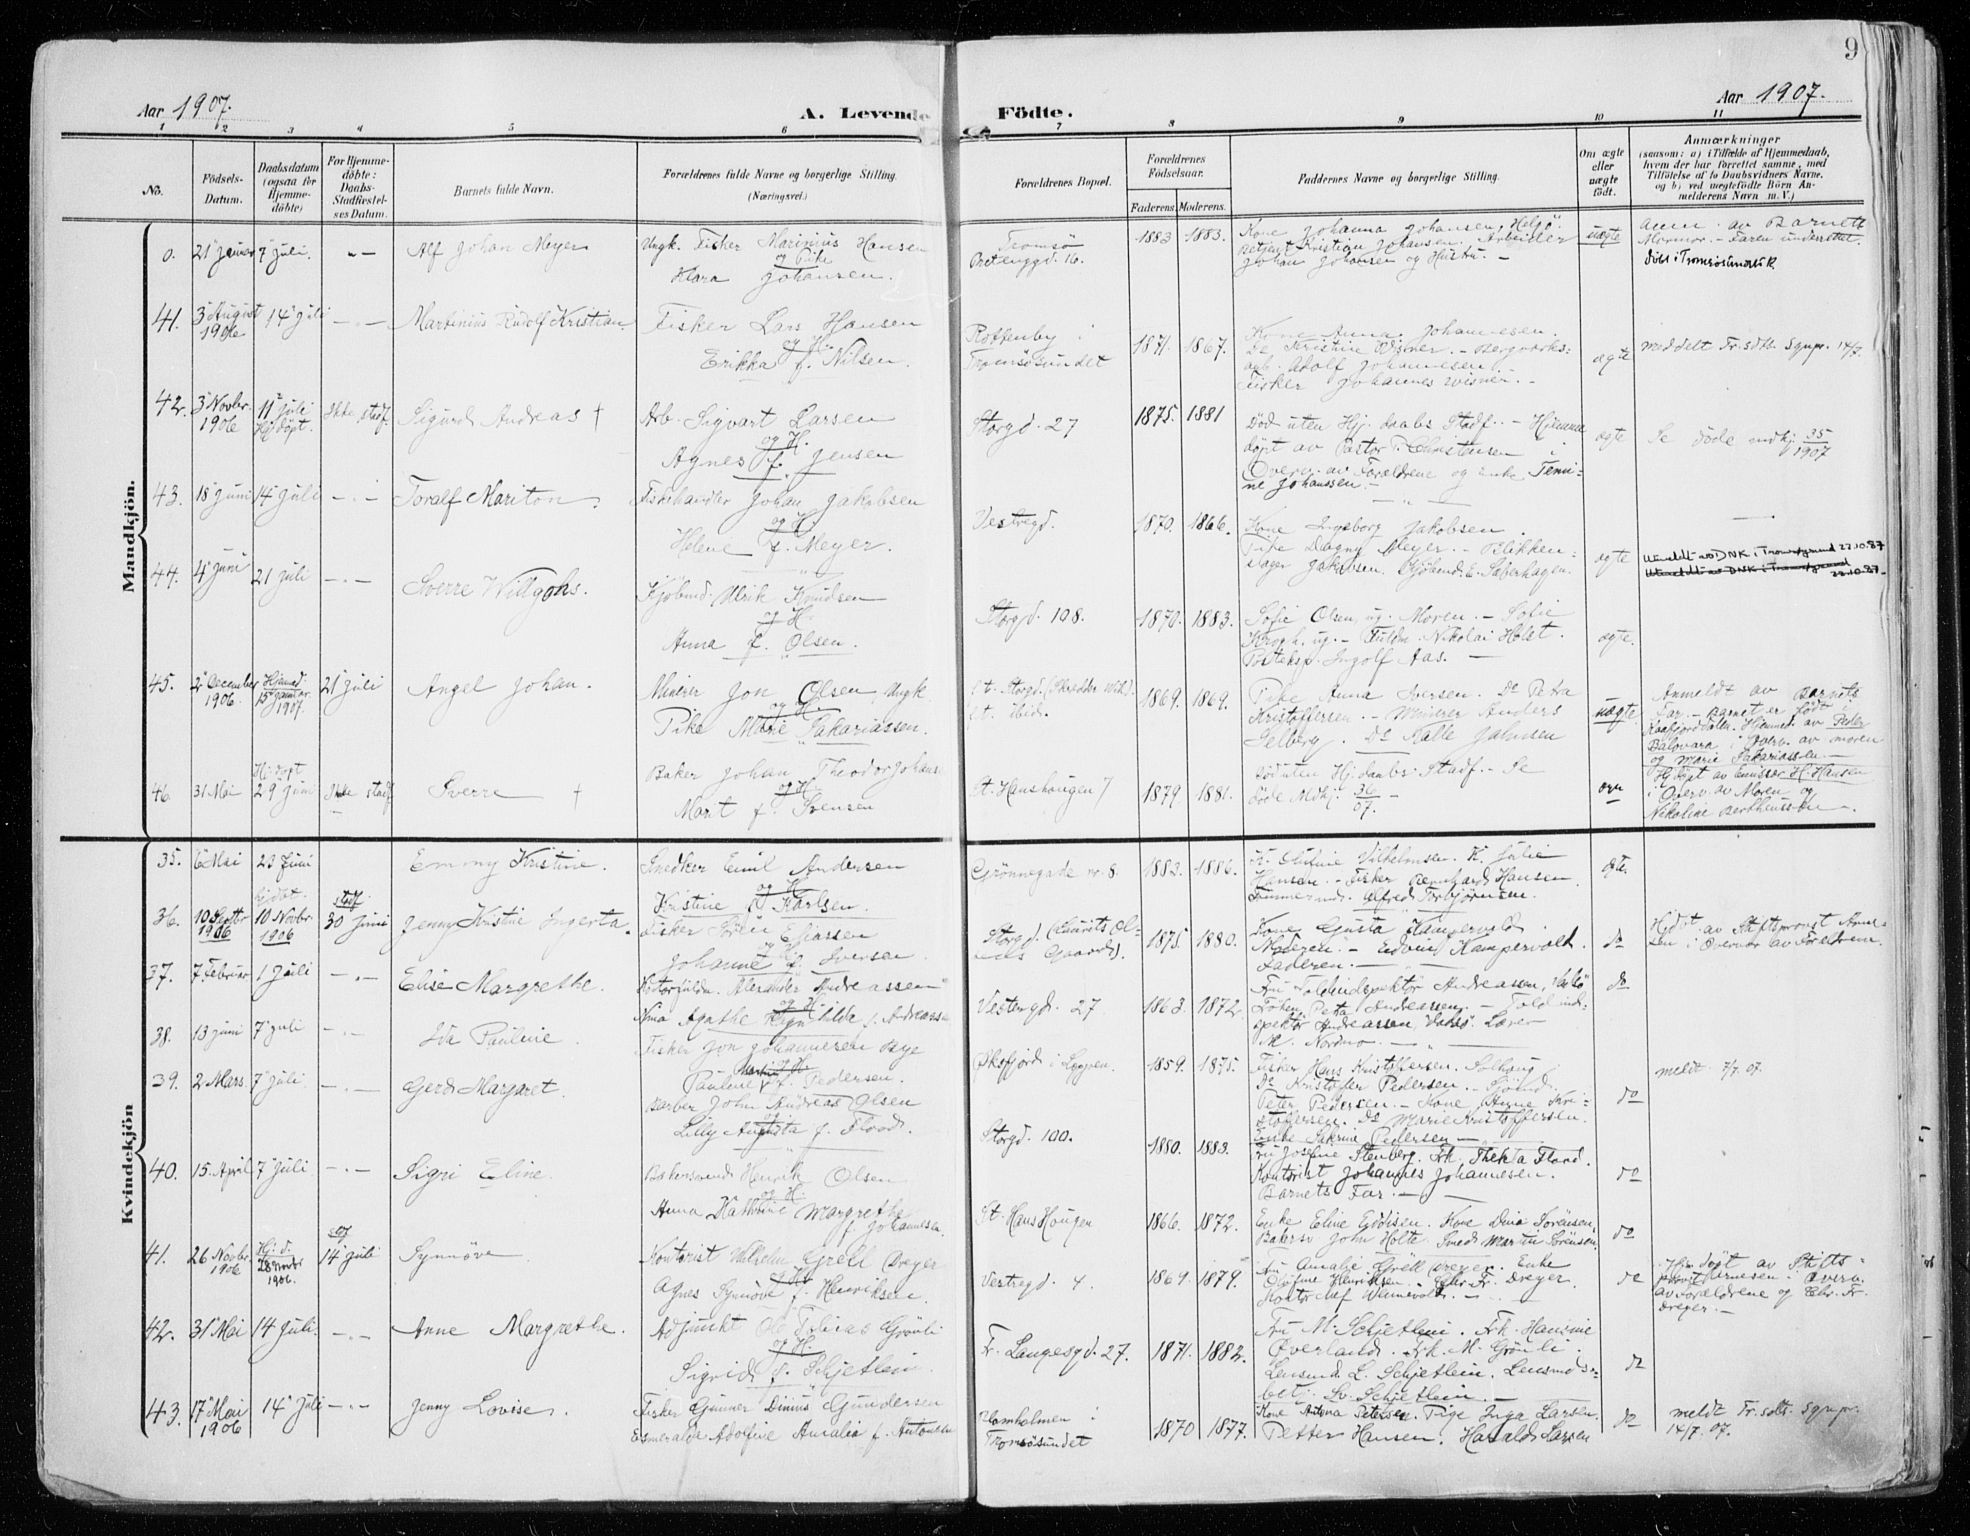 9
Aar 1907.
A. Levende Födte.
Aar 1907.
1 2 3 4 5 6 7 8 9 10 11
No.
Födsels-Datum.
Daabsdatum (ogsaa for Hjemme-döbte)
For Hjemme-döbte: Daabs-Stadfæstel-ses Datum.
Barnets fulde Navn.
Forældrenes fulde Navne og borgerlige Stilling. (Næringsvei.)
Forældrenes Bopæl.
Forældrenes Födselsaar.
Faderens. Moderens.
Faddernes Navne og borgerlige Stilling.
Om ægte eller uægte födt.
Anmærkninger
(saasom: a) i Tilfælde af Hjemmedaab,
hvem der har forrettet samme, med
Tilföielse af to Daabsvidners Navne,
og b) ved uægtefödte Börn An-
melderens Navn m. V.)
Mandkjön.
0. 21 Januar 7 juli. Alf Johan Meyer
Ungk. Fisker Marinius Hansen
og Pike
Klara Johansen.
Tromsö
1883 1883.
Kone Johanna Johansen, Helgö.
Betjent Kristian Johansen. Arbeider
Johan Johansen og Hustru. -
uægte
Anm. av Barnets
Mormor. - Faren underrettet.
41. 3 August 1906 14 juli - " - Martinius Rudolf Kristian.
Fisker Lars Hansen
og H.
Erikka f. Nilsen.
i
Tromsösundet
1871. 1867.
Kone Anna Johannesen.
Do Kristine Wisner. - Bergverks-
arb. Adolf Johannesen
Fisker Johannes Wisner. -
ægte
meddelt Tr.sdts. Sgnpr. 14/7.
42. 3 Novbr. 1906 11 juli Hj.döpt. Ikke stadf. Sigurd Andreas †
Arb. Sigvart Larsen
og H.
Agnes f. Jensen
Storgd. 27
1875. 1881
Död uten Hj. daabs Stadf. - Hjemme
döpt av Pastor Christensen i
Overv. av Forældrene og enke
Johanssen. -
ægte
Se döde mdkj. 35/1907
43. 18 juni 14 juli - " - Toralf Mariton.
Fiskehandler Johan Jakobsen
og H.
Helene f. Meyer.
Vestregd.
1870. 1866.
Kone Ingeborg Jakobsen.
Pike Dagny Meyer. - Blikken-
slager Jakobsen.
ægte
Utmeldt av DNK i Tromsøysund 22.10.87
44. 4 juni 21 juli - " - Sverre Willgohs.
Kjöbmd. Ulrik Knudsen
og H.
Anna f. Olsen.
Storgd. 108.
1870. 1883.
Sofie Olsen, ug. Moren. - Sofie
Krogh, ug. - Fuldm. Nikolai Holst.
Posteksp. Ingolf Aas. -
ægte.
45. 2 December 1906. Hjemmed. 15 januar 1907. 21 juli Angel Johan.
Minerer Jon Olsen, Ungk
Pike Marie Sakariassen.
1869. 1869.
Pike Anna Iversen. Do Petra
Kristoffersen. - Minerer Anders
Selberg. Do Kalle Johnsen
uægte.
Anmeldt av Barnets
Far. - Barnet er födt i
Hjemmed. av Peder
Balovara i Overv. av moren
og Marie Sakariassen -
46. 31 Mai Hj.döpt 29 juni Ikke stadf. Sverre †
Baker Johan Theodor Johans
og H.
Marit f. Svensen
St. Hanshaugen 7
1879 1881.
Död uten Hj. daabs Stadf. - Se
döde Mdkj. 36/07.
Hj.döpt av Emissær H. Hansen
i Overv. av Moren og
Nikoline Bertheussen.
Kvindekjön
35. 6 Mai 23 Juni Emmy Kristine.
Snedker Emil Andersen
og H.
Kristine f. Karlsen.
Grönnegade nr. 8.
1883. 1886.
K. Olufine Vilhelmsen. K. Julie
Hansen. - Fisker Bernhard Hansen.
Tömmermd. Alfred Torbjörnsen.
ægte.
36. 10 Septbr 1906 Hjdöbt. 10 Novbr. 1906 stadf 30 juni Jenny Kristine Ingerta.
Fisker Sören Eliassen
og H.
Johanne f. Iversen.
Storgd. (Laurits Ol-
sens Gaard).
1875. 1880.
Kone Gusta Kampevold.
Moderen. - Edvind Kampevold.
Faderen. -
do
Hjdöbt av Stiftsprovst Arne-
sen i Overvær av Forældrene.
37. 7 Februar 1 juli - " - Elise Margrethe.
Kontorfuldm. Alexander Andreassen
og H.
Nina Agathe Ragnhilde f. Andreasse
Vestregd. 27
1863. 1872.
Fru Toldinspektör Andreassen, Vadsö
Fröken Petra Andreassen. - Toldind-
spektör Andreassen, Vadsö. Lærer
M. Nordmo. -
do
38. 13 juni 7 juli - " - Ida Pauline.
Fisker Jon Johannesen Bye
Pauline f. Pedersen.
Øksfjord i Loppen.
1859. 1875.
Fisker Hans Kristoffersen. Solhaug
Do Kristofer Pedersen. - Sjömd.
Peter Pedersen. - Kone Anne Kri-
stoffersen. Do Marie Kristoffersen.
Enke Sakrine Pedersen -
do
meldt 7/7. 07.
39. 2 Mars. 7 juli - " - Gerd Margaret.
Barber John Andreas Olsen
og H.
Lilly Augusta f. Flood.
Storgd. 100.
1880. 1883.
Fru Josefine Stenberg. Frk. Thekla Flood.
Kontorist Johannes Johannesen.
Barnets Far. -
do
40. 15. April 7 juli - " - Sigri Eline.
Bakersvend Henrik Olsen
og H.
Anna Kathrine Margrethe
f. Johannesen.
St. Hans Haugen
1866. 1872.
Enke Eline Eddisen. Kone Dina Sörensen,
Bakersv John Holte. Smed Martin Sörensen
do
41. 26 Novbr. 1906 Hj. d. 28 Novbr 1906. 14 juli Synnöve
Kontorist Wilhelm Grell Dreyer
og H.
Agnes Synnöve f. Henriksen.
Vestregd. 4.
1869. 1879.
Fru Amalie Grell Dreyer. Enke
Olufine Henriksen. - Chr. Fr. Dreyer.
do
Hjm döpt av Stifts-
provst Arnesen i Overv.
av Forældrene og Chr. Fr.
Dreyer. -
42. 31 Mai 14 juli. - " - Anne Margrethe.
Adjunkt Ole Tobias Grönli
og H.
Sigrid f. Schjetlein.
Fr. Langesgd. 27.
1871. 1882.
Fru M. Schjetlein. Frk. Hansine
Överland. Frk. M. Grönli.
Lensmd. L. Schjetlein. Lensmds-
betj. Sv. Schjetlein. -
do
43. 17 Mai 1906 14 juli - " - Jenny Lovise.
Fisker Gunner Dinius Gundersen
Esmeralda Adolfine Amalia f. Antonsen
i
Tromsösundet
1870 1877.
Kone Antona Petersen. Pige Inga Larsen.
Petter Hansen. Harald Larsen
do
meldt Tr.sdts. Sgnpr.
14/7. 07.